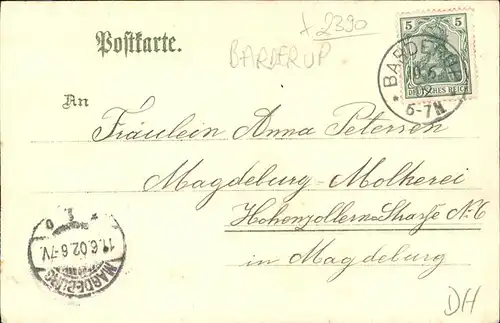 x 2390
Postkarte.
BARDERUP
5 5
DEUTSCHES REICH
BARDERUP
6-7N
An
Fräulein Anna Petersen
Magdeburg-Molkerei
Hohenzollern-Straße No 6
in Magdeburg
11.6.02.6-7V.
MAGDEBURG
DH